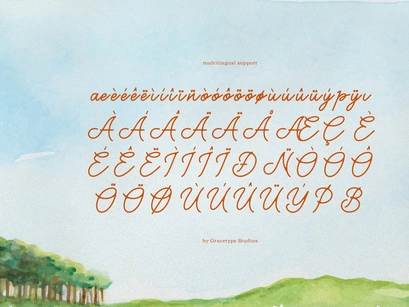 multilingual support
æèéêëìíîïñòóôõöøùúûüýþÿı
ÀÁÂÃÄÅÆÇÈ
ÉÊËÌÍÎÏÐÑÒÓÔ
ÕÖØÙÚÛÜÝÞß
by Gracetype Studios